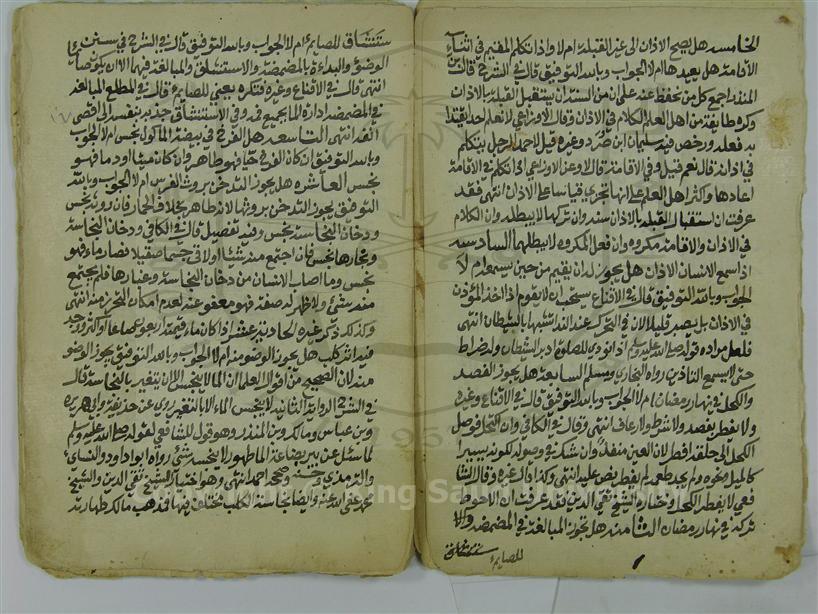 الخامسه هل يصح الاذان الى غير القبلة ام لا واذا تكلم المقيم في اثناء
الاقامة هل يعيدها ام لا الجواب وبالله التوفيق قال في الشرح قال ابن
المنذر اجمع كل من نحفظ عنه على ان من السنة ان يستقبل القبلة بالاذان
وكره طايفة من اهل العلم الكلام في الاذان وقال الاوزاعي لا نعلم احد يقتدا
به فعله ورخص فيه سليمان ابن صرد وغيره قيل لاحمد الرجل يتكلم
في اذانه قال نعم قيل وفي الاقامة قال لا وعن الاوزاعي اذا تكلم في الاقامة
اعادها وكثر اهل العلم على انها تجزي قياسا على الاذان انتهى فقد
عرفت ان استقبال القبلة بالاذان سنة وان تركها لا يبطله وان الكلام
في الاذان والاقامة مكروه وان فعل المكروه لا يبطلهما السادسه
اذا سمع الانسان الاذان هل يجوز له ان يقيم من حين يسمعه ام لا
الجواب وبالله التوفيق قال في الاقناع يستحب ان لا يقوم اذا اخذ المؤذن
في الاذان بل يصبر قليلا لان في التحرك عند الندا تشبها بالشيطان انتهى
فلعل مراده قوله صلى الله عليه وسلم اذا نودي للصلاة ادبر الشيطان وله ضراط
حتى لا يسمع التاذين رواه البخاري ومسلم السابعة هل يجوز الفصد
والكحل في نهار رمضان ام لا الجواب وبالله التوفيق قال في الاقناع وغيره
ولا يفطر بفصد ولا شرط ولا رعاف انتهى وقال في الكافي وان اكتحل فوصل
الكحل الى حلقه افطر لان العين منفذ وان شك في وصوله لكونه يسيرا
كالميل ونحوه ولم يجد طعمه لم يفطر نص عليه انتهى وكذا ذكر غيره وقال الشا
فعي لا يفطر الكحل وختاره الشيخ تقي الدين فقد عرفت ان الاحوط
تركه في نهار رمضان الثامنه هل تجوز المبالغة في المضمضه والا
ستنشاق للصايم
ستنشاق للصايم ام لا الجواب وبالله التوفيق قال في الشرح في سنن
الوضوء والبداءة بالمضمضة والاستنشاق والمبالغة فيهما الا ان يكون صائما
انتهى قال في الاقناع وغيره فتكره يعني للصايم قال في المطلع المبالغة
في المضمضه ادارة الماء بجميع فمه وفي الاستنشاق جذبه بنفسه الى اقصى
انفه انتهى التاسعه هل الفرخ في بيضة الماكول نجس ام لا الجواب
وبالله التوفيق ان كان الفرخ حيا فهو طاهر وان كان ميتا او دما فهو
نجس العاشره هل يجوز التدخن بروث الفرس ام لا الجواب وبالله
التوفيق يجوز التدخن بروثها لانه طاهر بخلاف الحمار فان روثه نجس
ودخان النجاسة نجس وفيه تفصيل قال في الكافي ودخان النجاسة
وبخارها نجس فان اجتمع منه شيئا او لاقى جسما صقيلا فصار ماء فهو
نجس وما اصاب الانسان من دخان النجاسة وغبارها فلم يجتمع
منه شيء ولا ظهر له صفة فهو معفو عنه لعدم امكان التحرز منه انتهى
وكذلك ذكر غيره الحادية عشر اذا كان ماء قيمة اربعون صاعا او اكثر ووجد
فيه اثر كلب هل يجوز الوضو منه ام لا الجواب وبالله التوفيق يجوز الوضو
منه لان الصحيح من اقوال العلما ان الماء لا ينجس الا ان يتغير بالنجاسة قال
في الشرح الرواية الثانيه لا ينجس الماء الا بالتغير روي عن حذيفة وابي هريره
وبن عباس ومالك وبن المنذر وهو قول للشافعي لقوله صلى الله عليه وسلم
لما سئل عن بير بضاعة الماء طهور لا ينجسه شيء رواه ابو داود والنسائي
والترمذي وحسنه وصححه احمد انتهى وهو اختيار الشيخ تقي الدين والشيخ
محمد عفى الله عنه وايضا نجاسة الكلب مختلف فيها فمذهب مالك طهارته